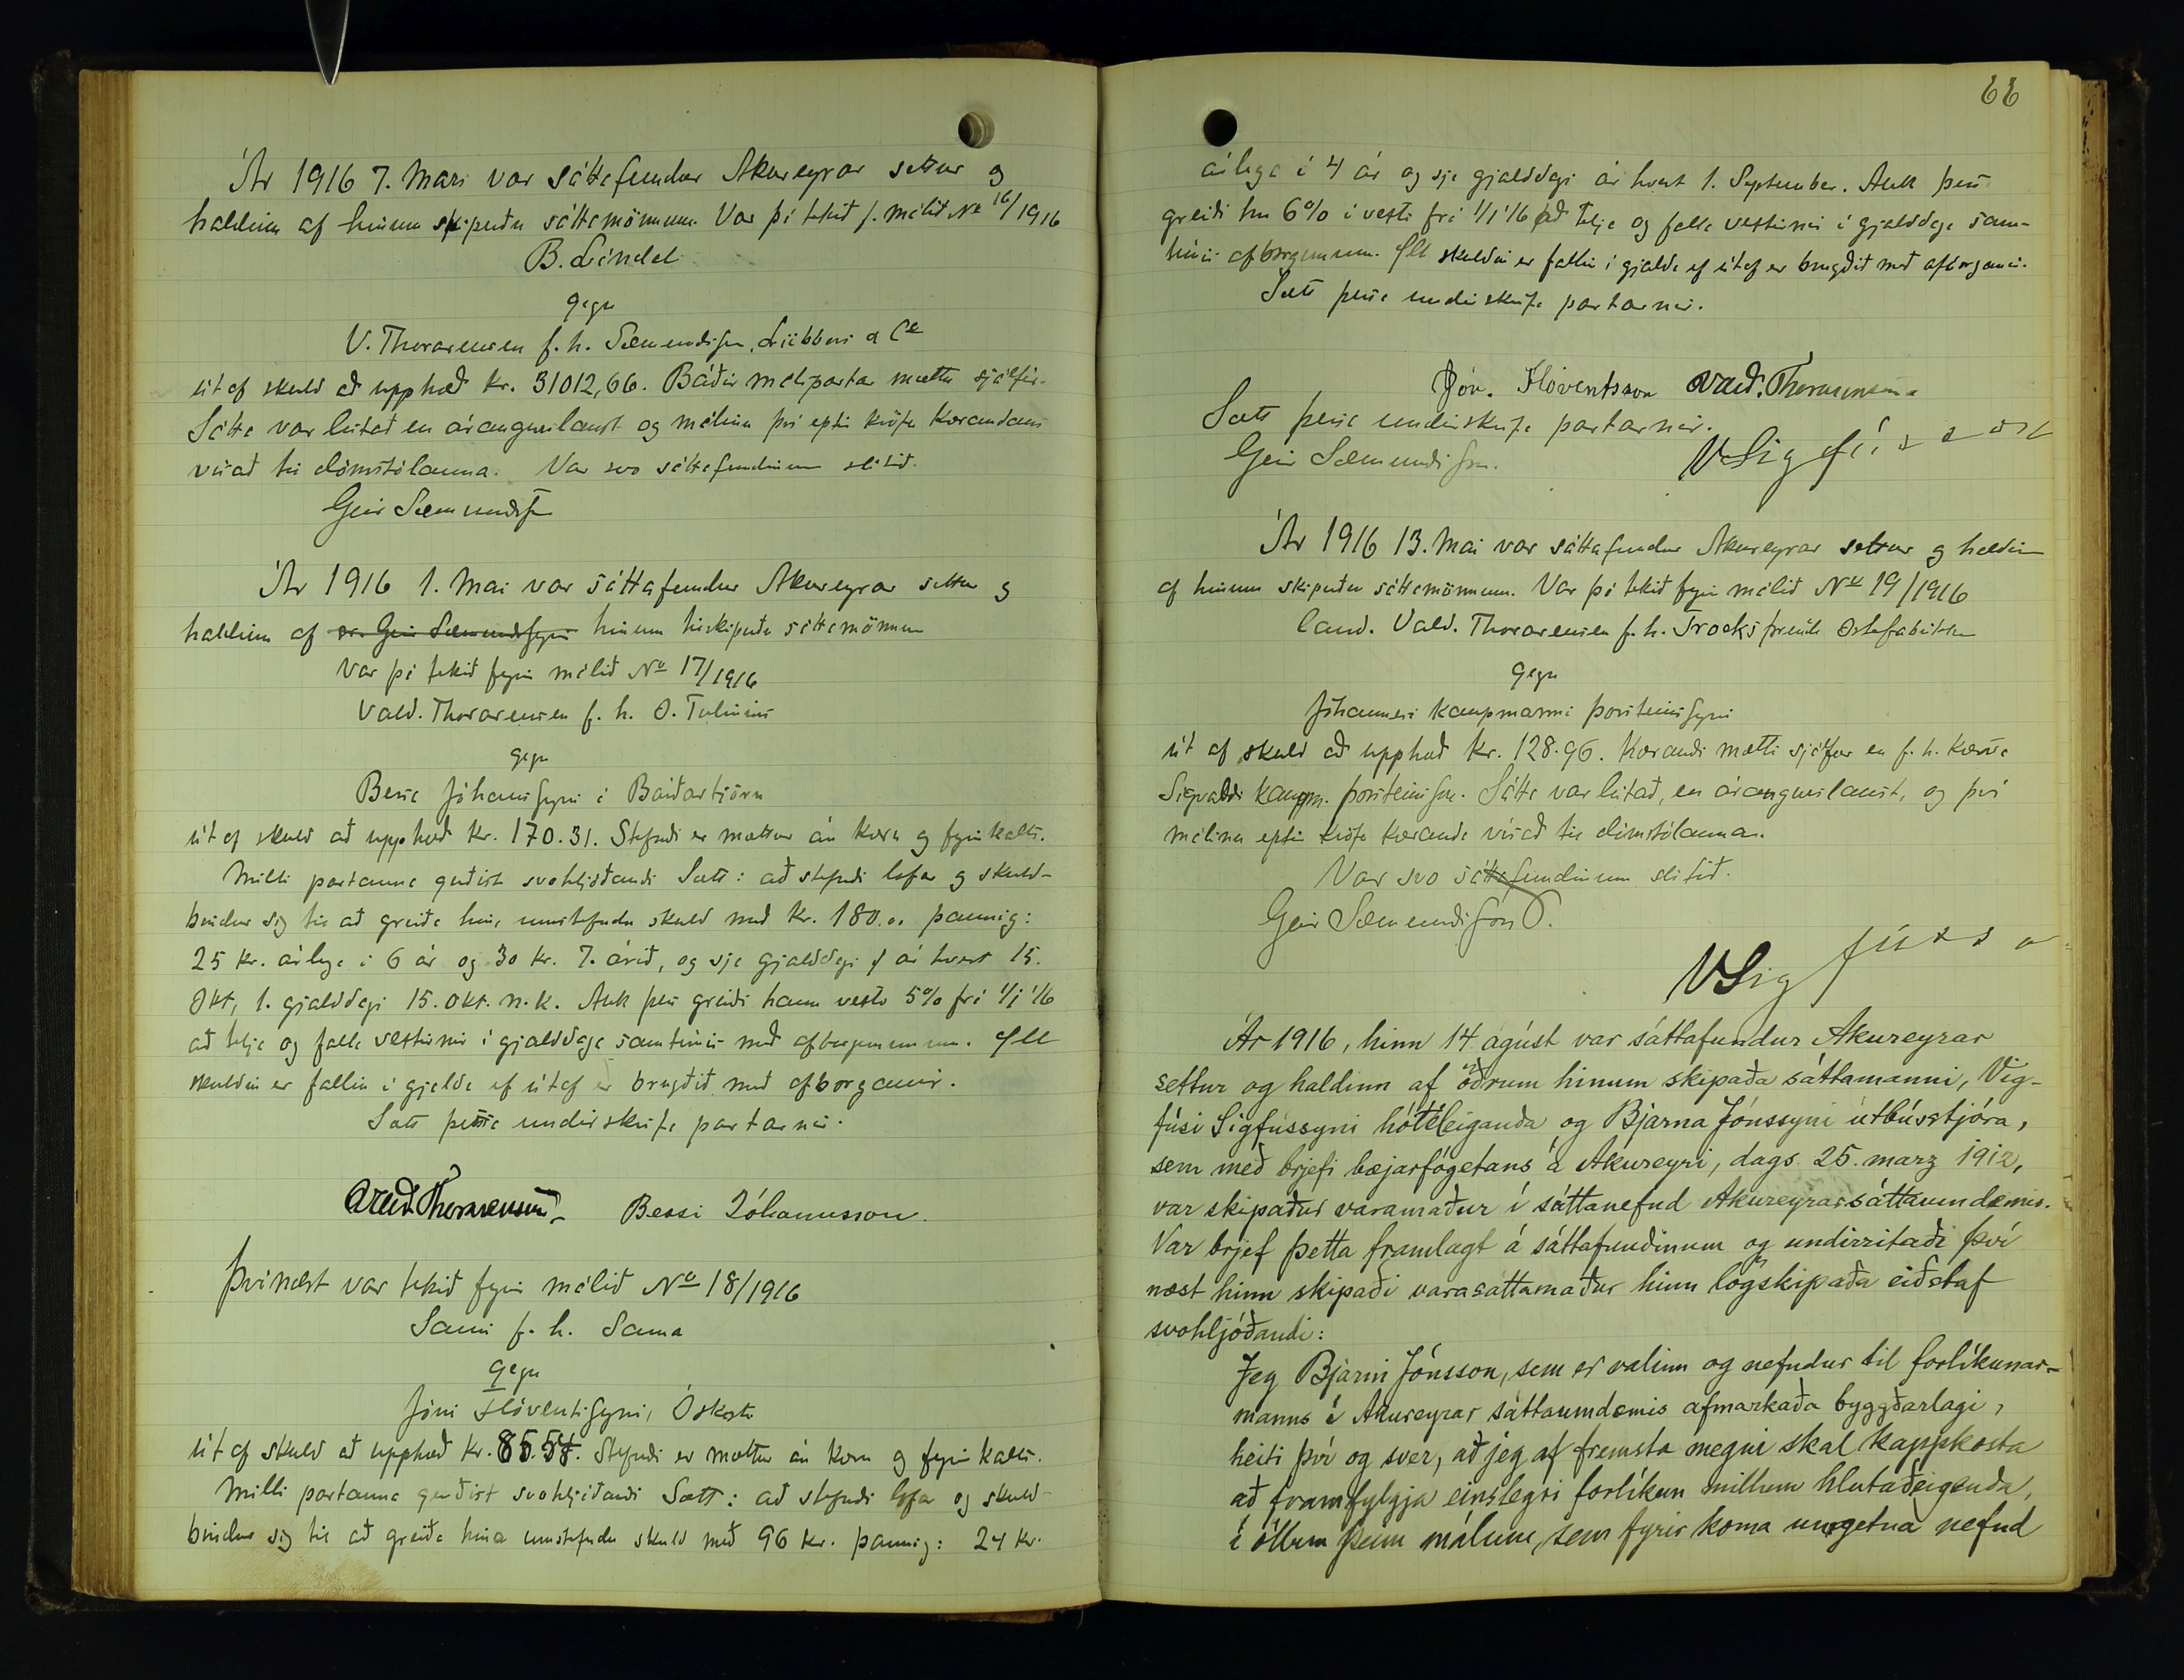 Ár 1916 7. Mars var sáttafundur Akureyrar settur og
haldinn af hinum skipuðu sáttamönnum. Var þá tekið f. málið No 16/1916
B. Líndal
gegn
V. Thorarensen f. h. Sæmundsen, Lübbers & Co
út af skuld að upphæð kr. 31012,66. Báðir málspartar mættu sjálfir.
Sátta var leitað en árangurslaust og málinu því eptir kröfu kærandans
vísað til dómstólanna. Var svo sáttafundinum slitið.
Geir Sæmundsson
Ár 1916 1. Mai var sáttafundur Akureyrar settur og
haldinn af sr. Geir Sæmundssyni hinum tilskipuðu sáttamönnum
Var þá tekið fyrir málið No 17/1916
Vald. Thorarensen f. h. O. Tulinius
gegn
Bessa Jóhannssyni í Bárðartjörn
út af skuld að upphæð kr. 170.31. Stefndi er mættur án kæru og fyrirkalls.
Milli partanna gerðist svohljóðandi Sátt: að stefndi lofar og skuld-
bindur sig til að greiða hina umstefndu skuld með kr. 180.00 þannig:
25 kr. árlega í 6 ár og 30 kr. 7. árið, og sje gjalddagi ár hvert 15.
Okt, 1. gjalddagi 15. okt. n.k. Auk þess greiði hann vexti 5% frá 1/1 '16
að telja og falla vextirnir í gjalddaga samtímis með afborgununum. Öll
skuldin er fallin í gjalddaga ef útaf er brugðið með afborganir.
Sátt þessa undirskrifa partarnir.
Vald. Thorarensen Bessi Jóhannsson.
Þvínæst var tekið fyrir málið No 18/1916
Sami f. h. Sama
gegn
Jóni Flóventssyni,
út af skuld að upphæð kr. 85.58. Stefndi er mættur án kæru og fyrirkalls.
Milli partanna gerðist svohljóðandi Sátt: að stefndi lofar og skuld-
bindur sig til að greiða hina umstefndu skuld með 96 kr. þannig: 24 kr.
66
árlega í 4 ár og sje gjalddagi ár hvert 1. September. Auk þess
greiði hn 6% í vexti frá 1/1 '16 að telja og falla vextirnir í gjalddaga sam-
tímis afborgunum. Öll skuldin er fallin í gjalddaga ef útaf er brugðið með afborganir.
Sátt þessa undirskrifa partarnir.
Jón. Flóventsson Vald. Thorarensen
Sátt þessa undirskrifa partarnir.
Geir Sæmundsson. V Sigfússon
Ár 1916 13. Mai var sáttafundur Akureyrar settur og haldinn
af hinum skipuðu sáttamönnum. Var þá tekið fyrir málið No 19/1916
Cand. Vald. Thorarensen f. h.
gegn
Jóhannesi kaupmanni Þorsteinssyni
út af skuld að upphæð kr. 128.96. Kærandi mætti sjálfur en f. h. kærða
Sigvaldi kaupm. Þorsteinsson. Sátta var leitað, en árangurslaust, og því
málinu eptir kröfu kæranda vísað til dómstólanna.
Var svo sáttafundinum slitið.
Geir Sæmundsson
V Sigfússon
Ár 1916, hinn 14. ágúst var sáttafundur Akureyrar
settur og haldinn af öðrum hinum skipaða sáttamanni, Vig-
fúsi Sigfússyni hóteleiganda og Bjarna Jónssyni útbússtjóra,
sem með brjefi bæjarfógetans á Akureyri, dags. 25. marz 1912,
var skipaður varamaður í sáttanefnd Akureyrarsáttaumdæmis.
Var brjef þetta framlagt á sáttafundinum og undirritaði því
næst hinn skipaði varasattamaður hinn lögskipaða eiðstaf
svohljóðandi:
Jeg Bjarni Jónsson, sem er valinn og nefndur til forlíkunar-
manns í Akureyrar sáttaumdæmis afmarkaða byggðarlagi,
heiti því og sver, að jeg af fremsta megni skal kappkosta
að framfylgja einslegri forlíkun millum hlutaðeigenda,
í öllum þeim málum, sem fyrir koma umgetna nefnd